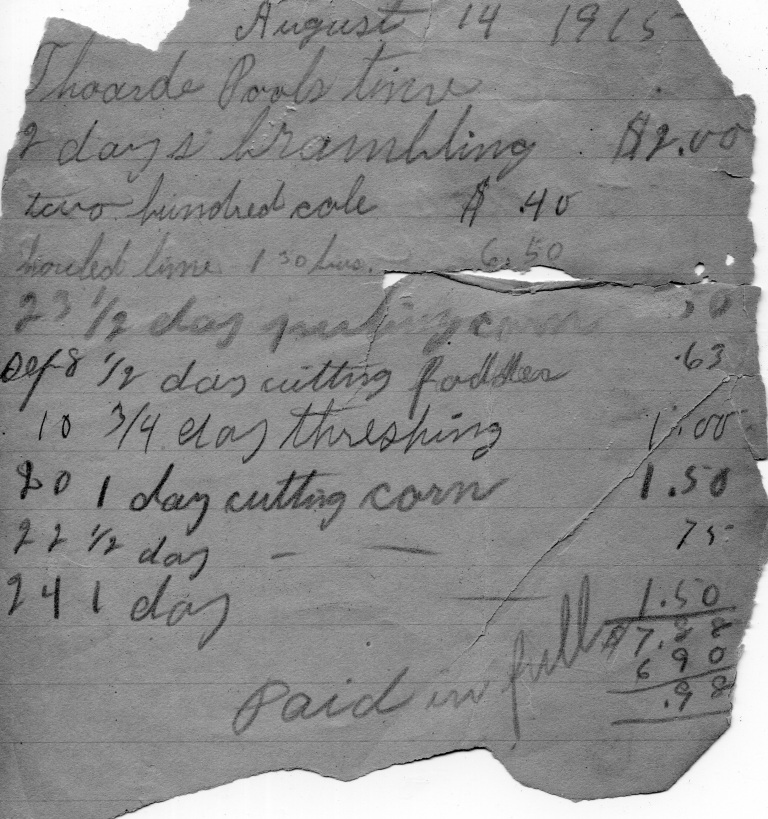 August 14 1915
Thoarde Pools time
2 days brambling $2.00
two hundred cole $ .40
houled lime 1 30 hrs. 6.50
23 1/2 day corn 50
Sep 8 1/2 day cutting fodder .63
10 3/4 day threshing 1.00
20 1 day cutting corn 1.50
22 1/2 day — — 75
24 1 day — 1.50
$7.88
6 90
.98
Paid in full